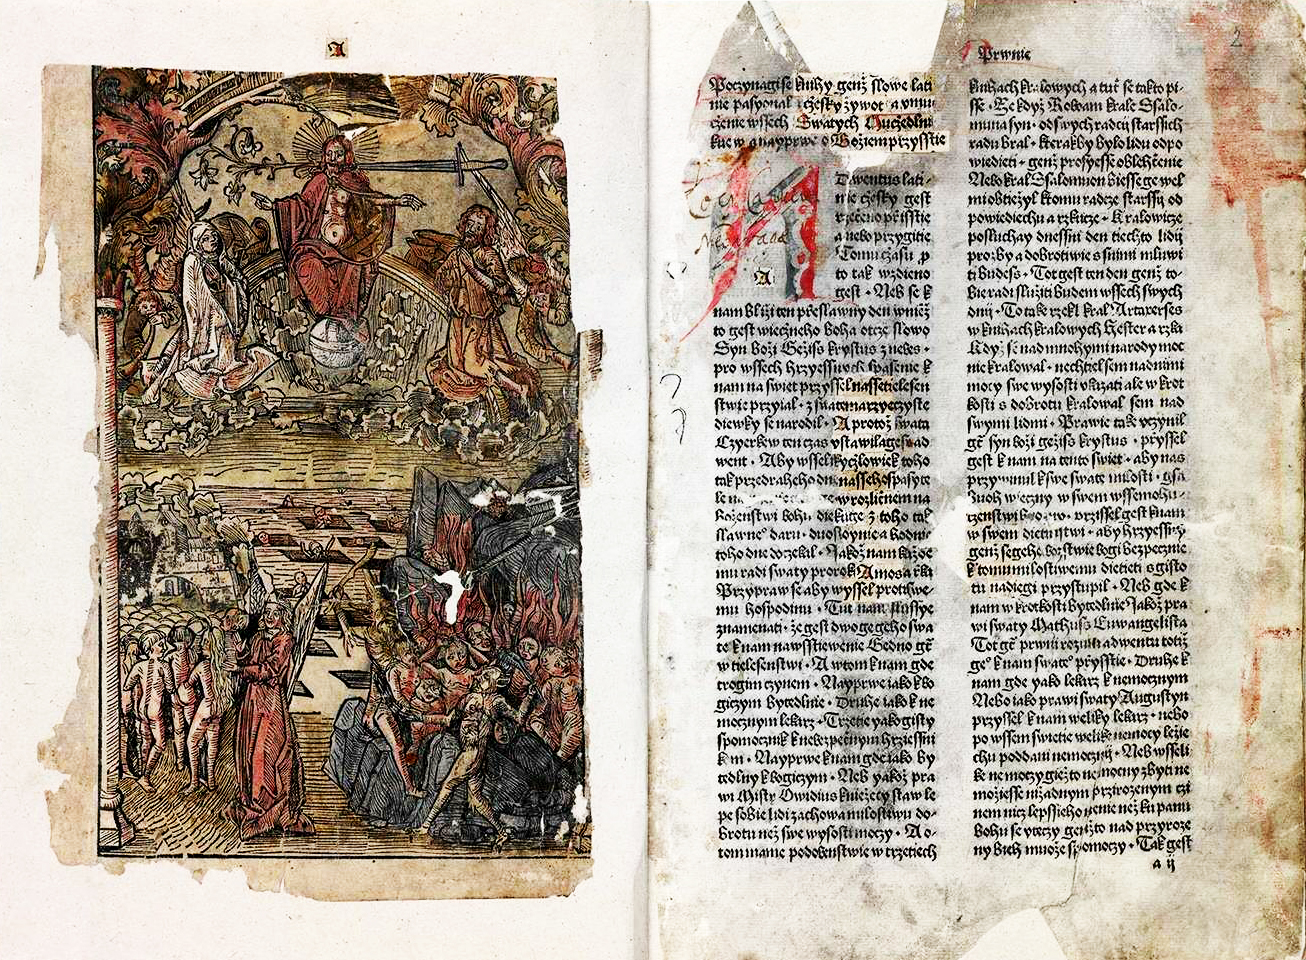 A
Poczynagi se knihy genż slowe lati
nie pasyonal i cżesky żywot a vmu
cżenie wssech Swatych Mucżedlni
kuow a nayprwe o Bożiem przyssstie
Dwentus lati-
nie cżesky gest
rżecżeno prżisstie
a nebo przygitie
Tomu cżasu p
to tak wzdieno
gest · Neb se k
A
nam bliżi ten přeslawny den w niż
to gest wiecżneho boha otcże slowo
Syn boži Gežiss krystus z nebes ·
pro wssech hrzyessnych spasenie k
nam na swiet przyssel nasse tielesen
stwie przyial · z swate marzye cżyste
diewky se narodil · A protož swata
Czyrkew ten cżas vstawila gest ad
went · Aby wsseliky cżlowiek toho
tak przedraheho dne nasseho spasyte
le w rozlicżnem na
boženstwi bohu diekuge z toho tak
slawneho daru · duostoynie a hodnie
toho dne docżekal · Jakož nam każde
mu radi swaty prorok Amos a rka
Przypraw se aby wyssel protiwe-
mu hospodinu · Tut nam slussye
znamenati · że gest dwoge geho swa
te k nam nawsstiewenie Gedno gt
w tielesenstwi · A w tom k nam gde
trogim cżynem · Nayprwe iako k bo
gicżym bytedlnie · Druhe iako k ne
mocżnym lekarz · Trzetie yako gisty
spomocżnik k nebezpecżnym hrziessni
k m · Nayprwe k nam gde iako by
tedlny k bogicżym · Neb yakož pra
wi Mistr Owidius knieżecy staw le
pe sobie lidi zachowa milostiwu do-
brotu než swe wysosti mocży · A o-
tom mame podobenstwie w trzetiech
Prwnie
2
knihach kralowych a tut se takto pi-
sse · Że když Roboam krale Ssalo-
muna syn · od swych radcij starssich
radu bral · kterak by bylo lidu odpo
wiedieti · genž prosyesse oblehcżenie
Nebo kral Ssalomun biesse ge wel
mi obtieżyl k tomu radcże starssij od
powiediechu a rzkucże · Kralowicże
posluchay dnessni den tiechto lidij
prozby a dobrotiwie s nimi mluwi
ti budess · Tot gest ten den genž to-
bie radi slużiti budem wssech swych
dnij · To take rzekl kral Artaxerses
w knihach kralowych Hester a rzka
Když se nad mnohymi narody moc
nie kralowal · nechtiel sem nad nimi
mocy swe wysosti vkazati ale w krot
kosti s dobrotu kralowal sem nad
swymi lidmi · Prawie take vcżynil
ge syn boži gežiss krystus · przyssel
gest k nam na tento swiet · aby nas
k swe swate milosti · gsa
Buoh wiecżny w swem wssemohu-
przissel gest k nam
w swem dietinstwi · aby hrzyessny
genž segeho božstwie bogi bezpecżnie
k tomu milostiwemu dietieti s gisto
tu nadiegi przystupil · Neb gde k
nam w krotkosti bytedlnie Jakož pra
wi swaty Mathuss Euwangelista
Tot gt prwni rozum adwentu totiż
geho k nam swate przysstie · Druhe k
nam gde yako lekarz k nemocżnym
Nebo iako prawi swaty Augustyn
przyssel k nam weliky lekarz · nebo
po wssem swietie welike nemocy leżie
chu poddani nemocżnij · Neb wsseli
ke nemocży gieżto nemocżny zbyti ne
możiesse niżadnym przirozenym czi
nem nicż lepssieho nenie neż ku panu
bohu se vtecży genžto nad przyroze
ny bieh muože spomocży · Tak gest
a ij